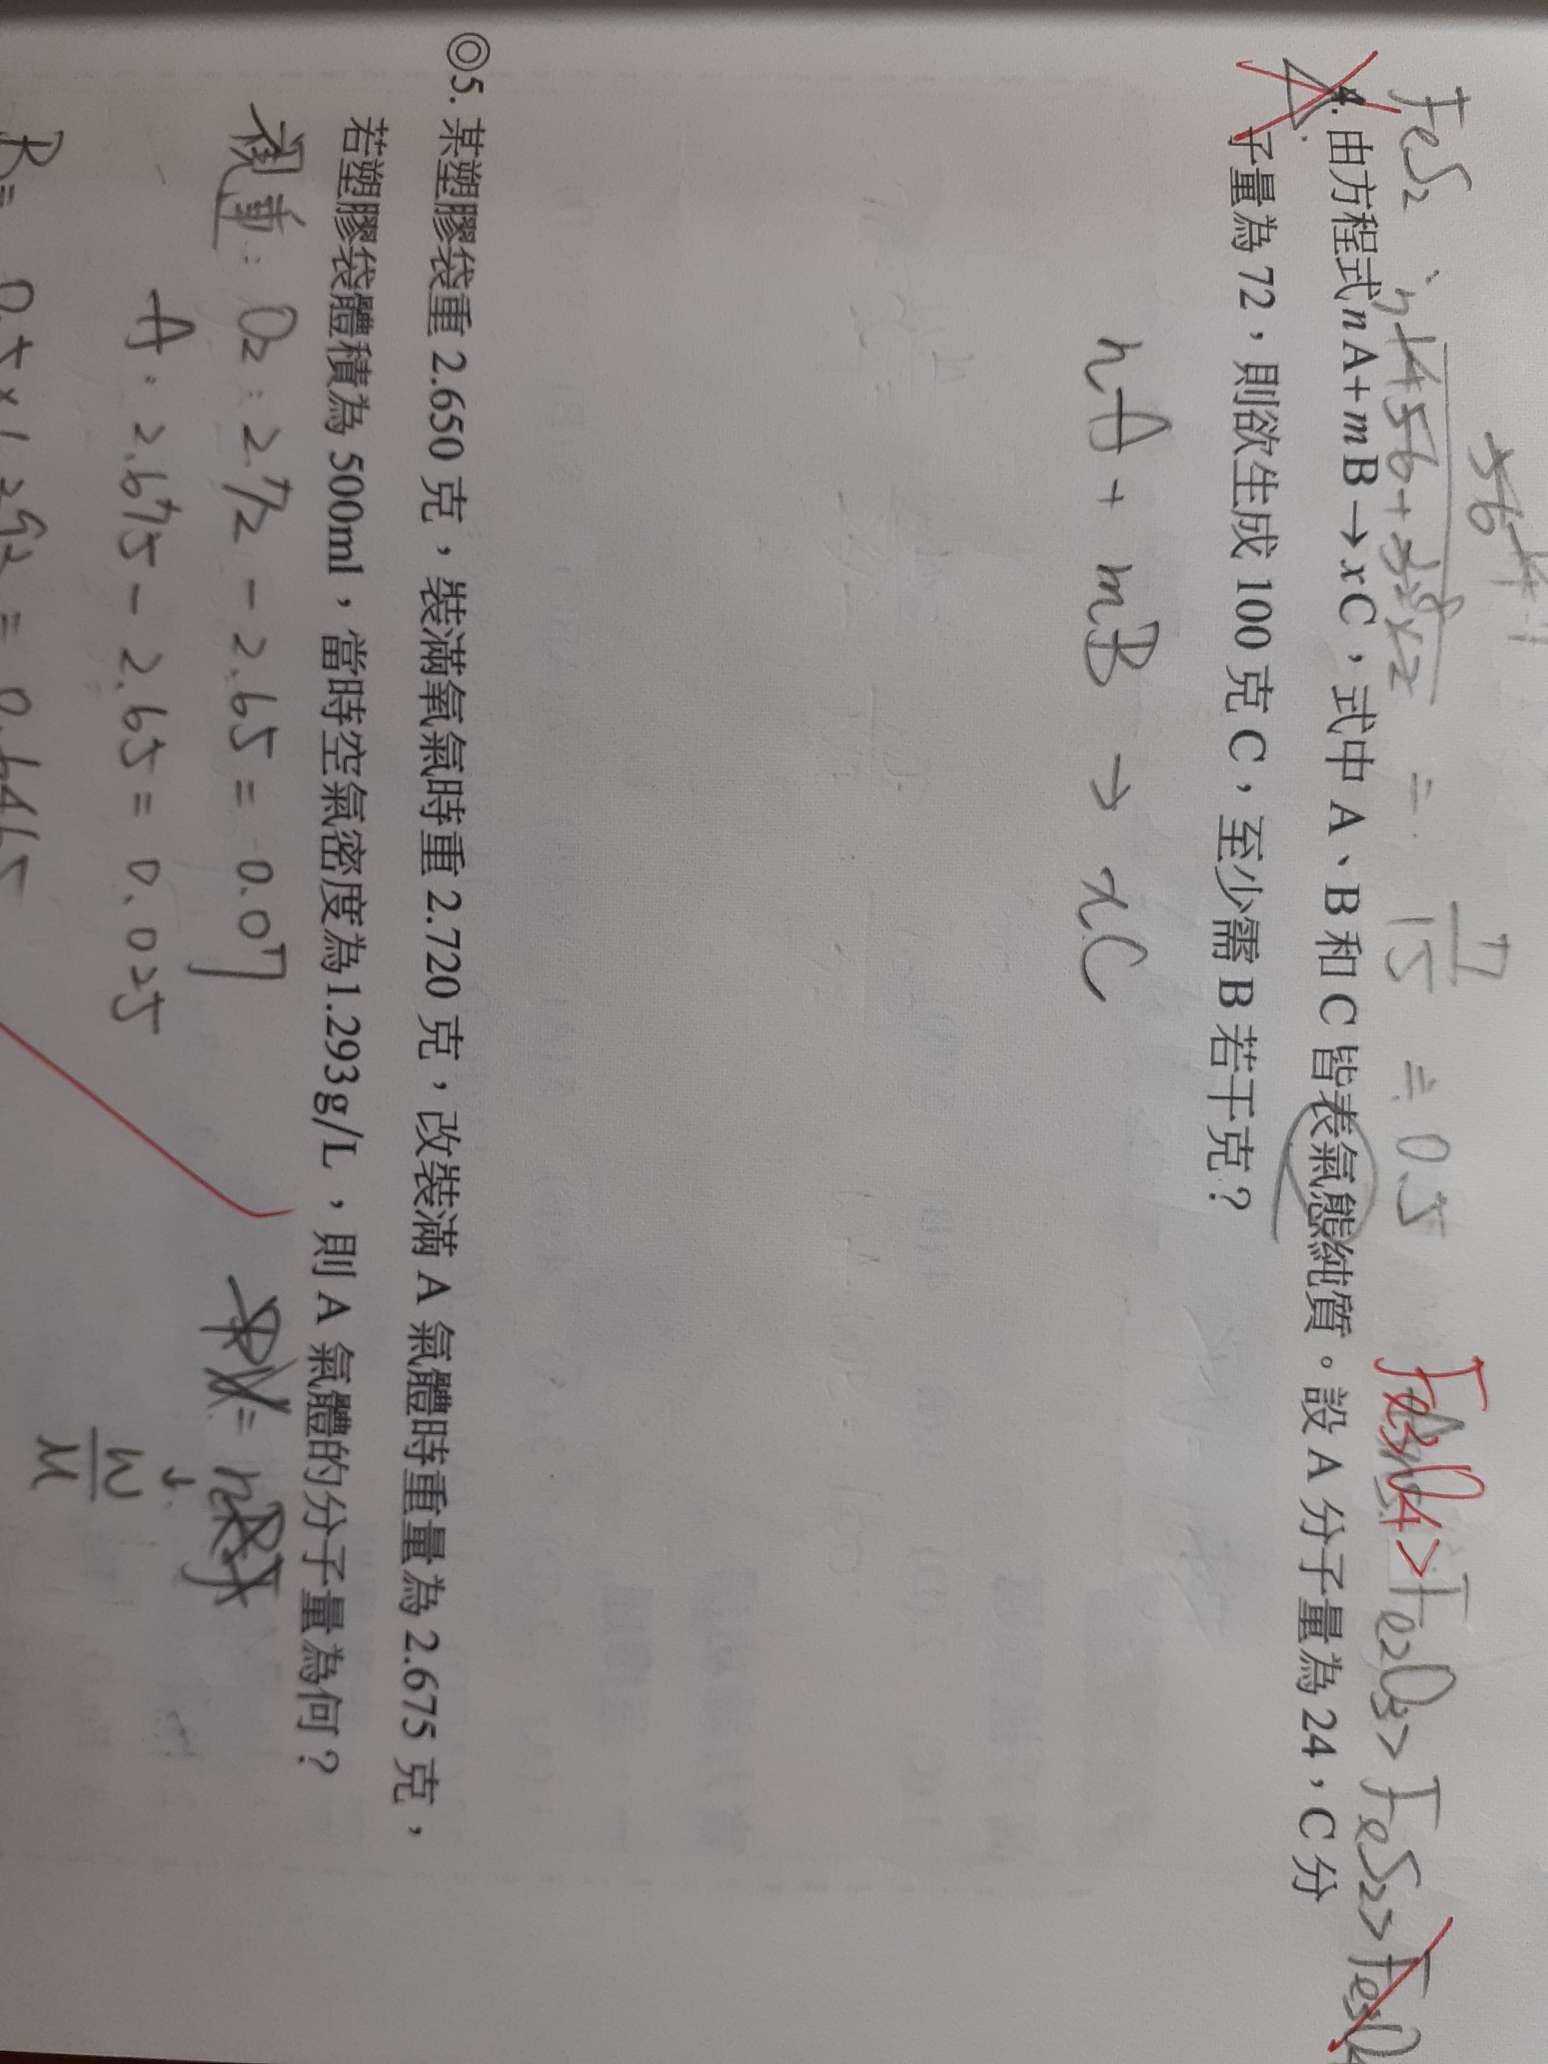 56
7
FeS₂、 = 15 = 0.5 > Fe₂O₃ > FeS₂ >
4. 由方程式 n A+m B→x C，式中 A、B 和 C 皆表氣態純質。設 A 分子量為 24，C 分
子量為 72，則欲生成 100 克 C，至少需 B 若干克？
nA + mB → xC
◎5. 某塑膠袋重 2.650 克，裝滿氧氣時重 2.720 克，改裝滿 A 氣體時重量為 2.675 克，
若塑膠袋體積為 500ml，當時空氣密度為1.293g/L，則 A 氣體的分子量為何？
視重： O₂：2.72 - 2.65 = 0.07
A：2.675 - 2.65 = 0.025
W
M
B = 0.5 × 1.293 = 0.6465